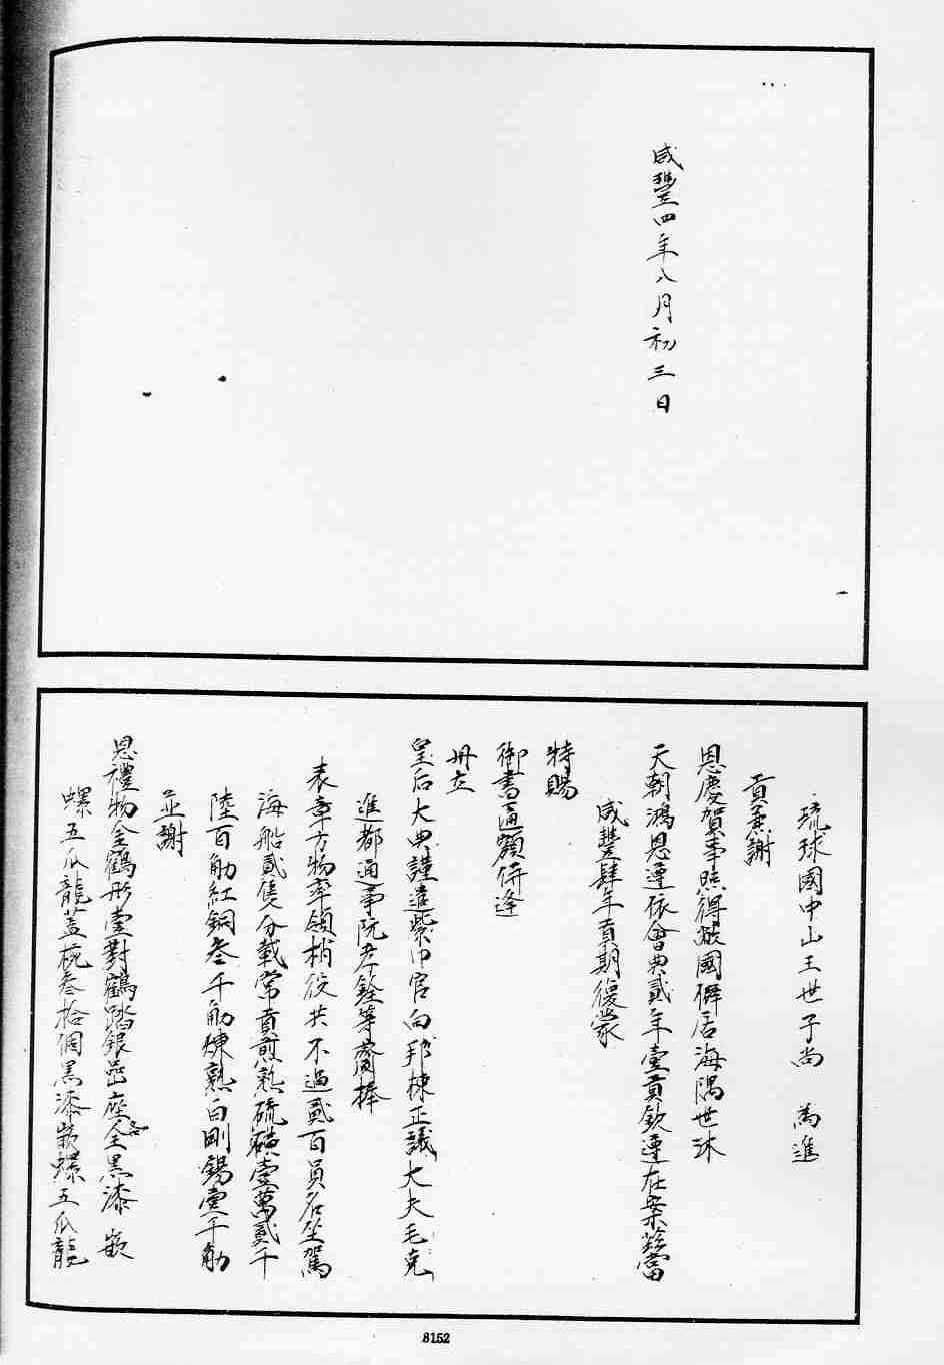 咸豐四年八月初三日
琉球國中山王世子尚　為進
貢兼謝
恩慶賀事照得敝國僻居海隅世沐
天朝鴻恩遵依會典貳年壹貢欽遵在案茲當
咸豐肆年貢期復蒙
特賜
御書匾額併逢
冊立
皇后大典謹遣紫巾官向邦棟正議大夫毛克
進都通事阮孝銓等齎捧
表章方物率領梢役共不過貳百員名坐駕
海船貳隻分載常貢煎熟硫磺壹萬貳千
陸百觔紅銅叁千觔煉熟白剛錫壹千觔
並謝
恩禮物金鶴形壹對鶴踏銀嵒座各全黑漆嵌
螺五爪龍蓋椀叁拾個黑漆嵌螺五爪龍
8152